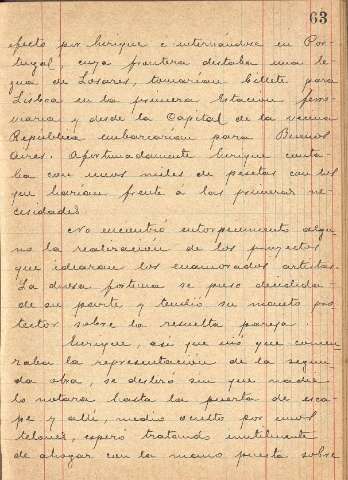 63
efecto por Enrique e internándose en Por-
tugal, cuya frontera distaba una le
gua de Losares, tomarían billete para
Lisboa en la primera Estación ferro
viaria y desde la Capital de la vecina
República embarcarían para Buenos
Aires. Afortunadamente Enrique conta-
ba con unos miles de pesetas con los
que harían frente á las primeras ne-
cesidades.
No encontró entorpecimiento algu
no la realización de los proyectos
que idearan los enamorados artistas.
La diosa fortuna se puso decidida-
de su parte y tendió su manto pro
tector sobre la resuelta pareja.
Enrique, así que vió que comen
zaba la representación de la segun
da obra, se deslizó sin que nadie
lo notara hasta la puerta de esca
pe y allí, medio oculto por unos
telones, esperó tratando inutilmente
de ahogar con la mano puesta sobre